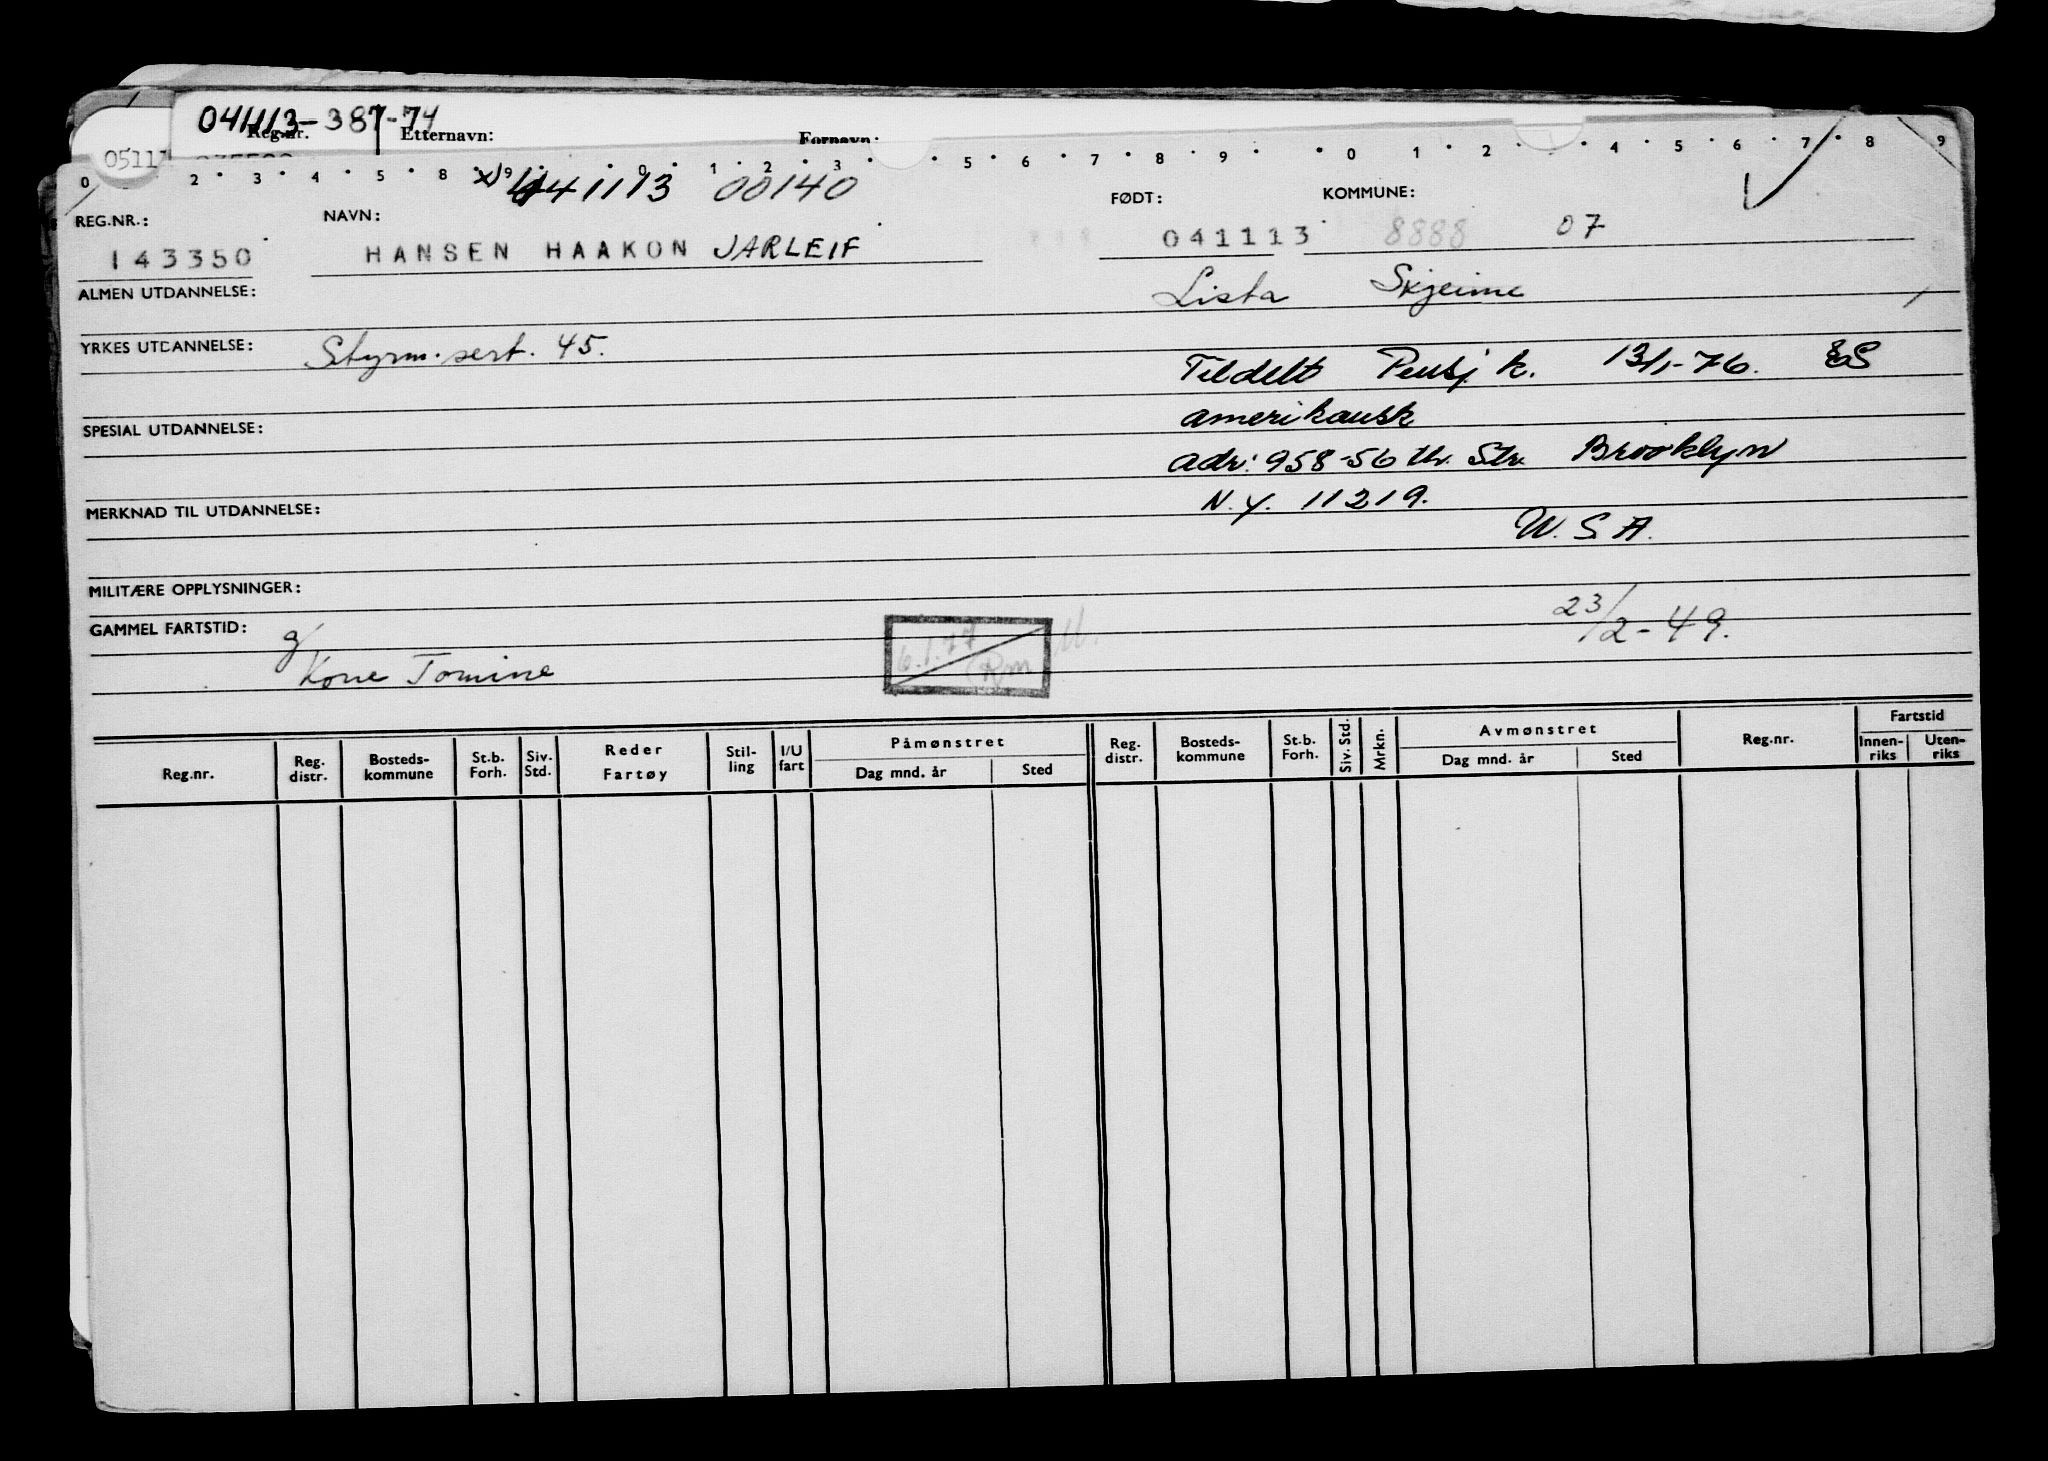 041113-387-74
Reg.nr. Etternavn: Fornavn:
0511
0 2 3 4 5 8 9 0 1 2 3 5 6 7 8 9 0 1 2 4 5 6 7 8 9
041113 00140
REG.NR.: NAVN: FØDT: KOMMUNE:
143350 HANSEN HAAKON JARLEIF 041113 8888 07
ALMEN UTDANNELSE: Lista Skjeime
YRKES UTDANNELSE: Styrm.sert. 45.
Tildelt Pensj k. 13/1-76. ES
amerikansk
SPESIAL UTDANNELSE:
adr: 958-56 th. Str. Brooklyn
N.Y. 11219.
MERKNAD TIL UTDANNELSE:
U.S.A.
MILITÆRE OPPLYSNINGER:
GAMMEL FARTSTID: g/ 23/2-49.
Kone Tomine
6.1.77
Rm
Reg.nr. Reg. distr. Bosteds-kommune St.b. Forh. Siv. Std. Reder Fartøy Stil-ling I/U fart Påmønstret Dag mnd. år Sted Reg. distr. Bosteds-kommune St.b. Forh. Siv. Std. Mrkn. Avmønstret Dag mnd. år Sted Reg.nr. Fartstid Innen-riks Uten-riks